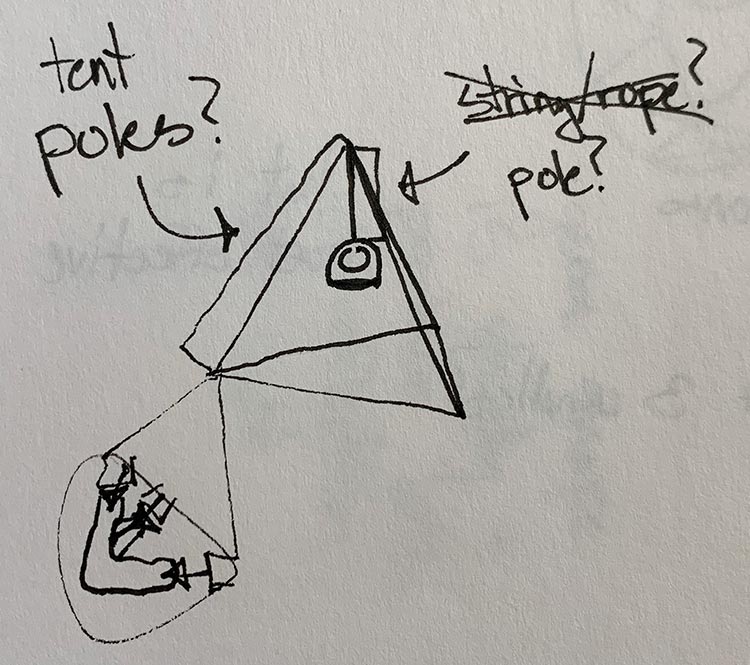 tent
poles?
string/rope?
pole?